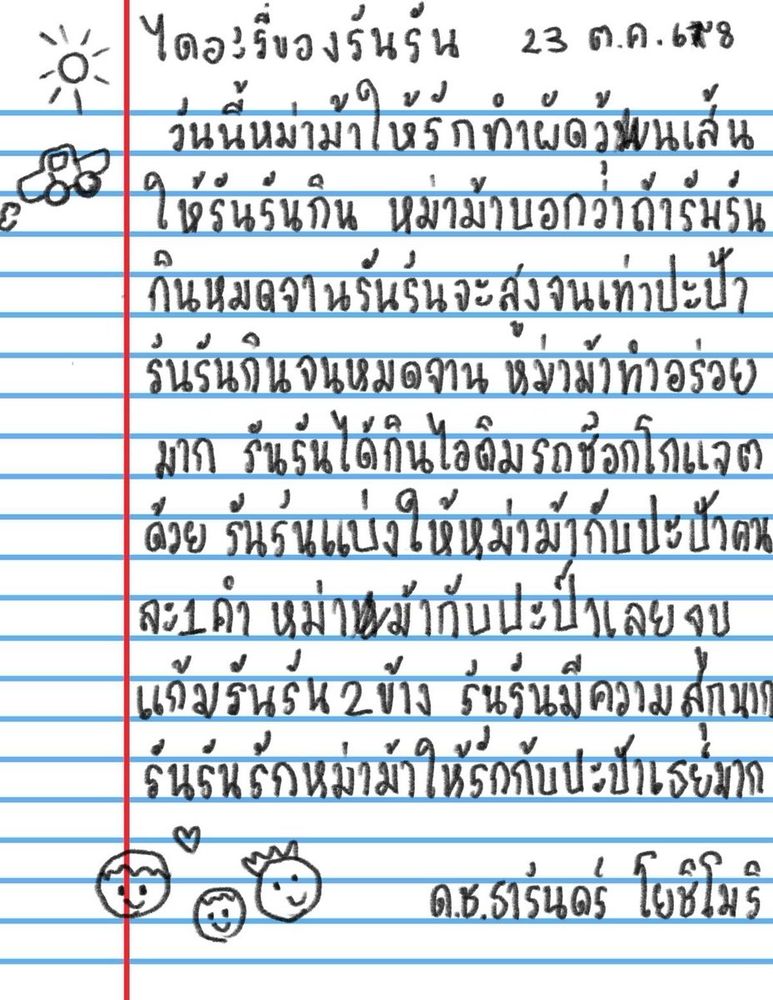 ไดอะรี่ของรันรัน 23 ต.ค. 68
วันนี้หม่าม้าให้รักทำผัดวุ้นเส้น
ให้รันรันกิน หม่าม้าบอกว่าถ้ารันรัน
กินหมดจานรันรันจะสูงจนเท่าปะป๊า
รันรันกินจนหมดจาน หม่าม้าทำอร่อย
มาก รันรันได้กินไอติมรถช็อกโกแจต
ด้วย รันรันแบ่งให้หม่าม้ากับปะป๊าคน
ละ1คำ หม่าม้ากับปะป๊าเลยจุบ
แก้มรันรัน 2 ข้าง รันรันมีความสุกมาก
รันรันรักหม่าม้าให้รักกับปะป๊า มาก
ด.ช.ธารันดร์ โยชิโมริ